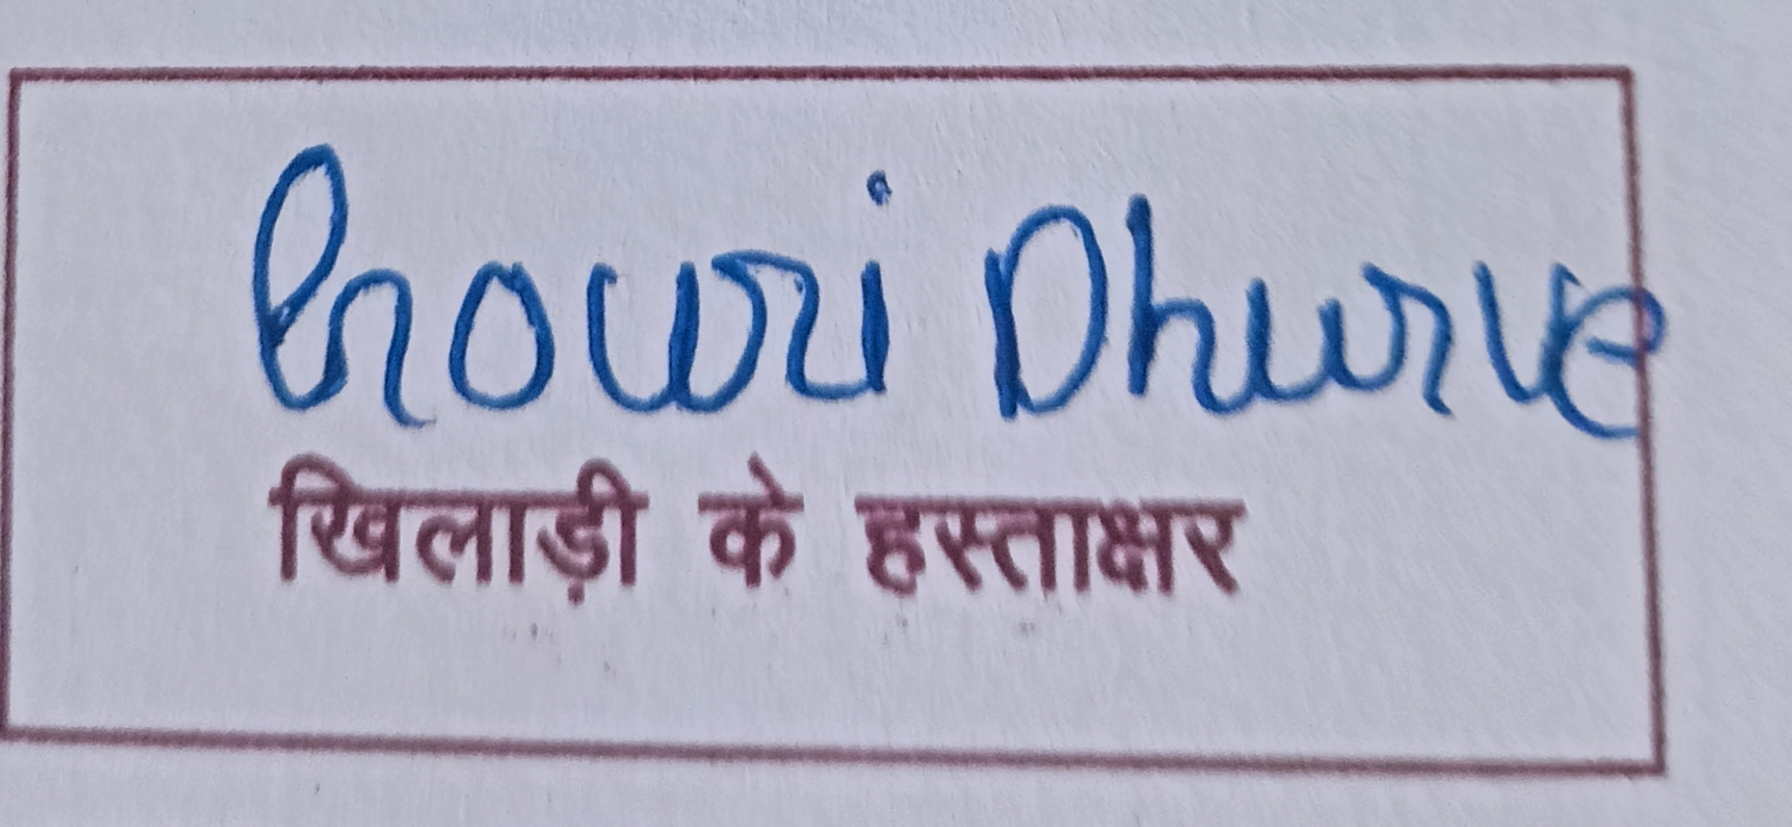 Gowri Dhurve
खिलाड़ी के हस्ताक्षर